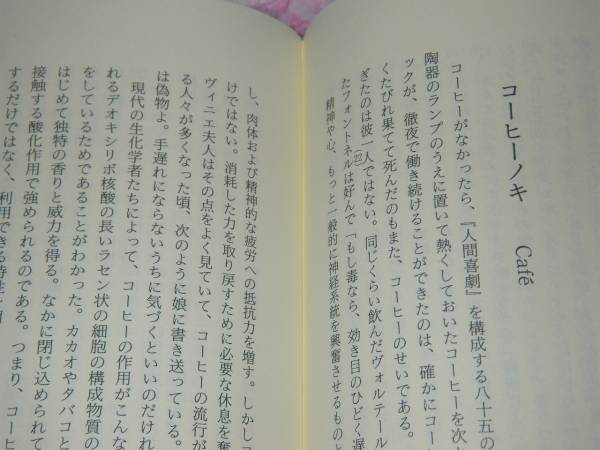 コーヒーノキ Café
コーヒーがなかったら、『人間喜劇』を構成する八十五の
陶器のランプのうえに置いて熱くしておいたコーヒーを次
ックが、徹夜で働き続けることができたのは、確かにコー
くたびれ果てて死んだのもまた、コーヒーのせいである。
ぎたのは彼一人ではない。同じくらい飲んだヴォルテール
たフォントネルは好んで「もし毒なら、効き目のひどく遅
(22)
精神や心、もっと一般的に神経系統を興奮させるものと
し、肉体および精神的な疲労への抵抗力を増す。しかし
けではない。消耗した力を取り戻すために必要な休息を奪
ヴィニエ夫人はその点をよく見ていて、コーヒーの流行が
る人々が多くなった頃、次のように娘に書き送っている。
は偽物よ。手遅れにならないうちに気づくといいのだけれ
現代の生化学者たちによって、コーヒーの作用がこんな
れるデオキシリボ核酸の長いラセン状の細胞の構成物質の
をしているためであることがわかった。カカオやタバコと
はじめて独特の香りと威力を得る。なかに閉じ込められて
接触する酸化作用で強められるのである。つまり、コーヒ
するだけではなく、利用できる特性